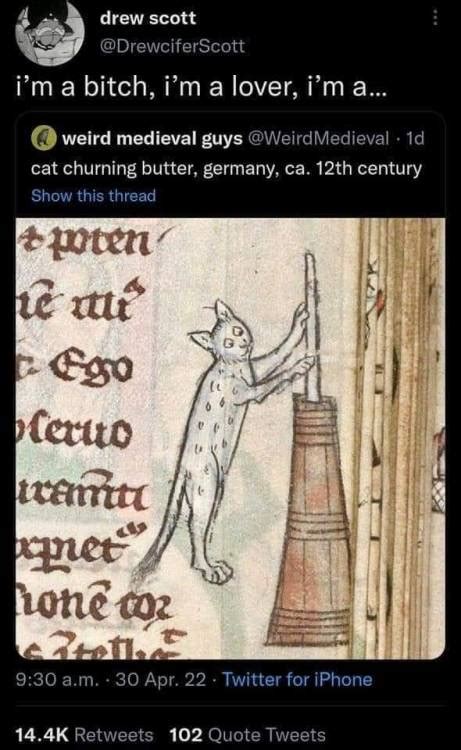 drew scott
@DrewciferScott
i’m a bitch, i’m a lover, i’m a...
weird medieval guys @WeirdMedieval · 1d
cat churning butter, germany, ca. 12th century
Show this thread
poten
Ego
9:30 a.m. · 30 Apr. 22 · Twitter for iPhone
14.4K Retweets 102 Quote Tweets